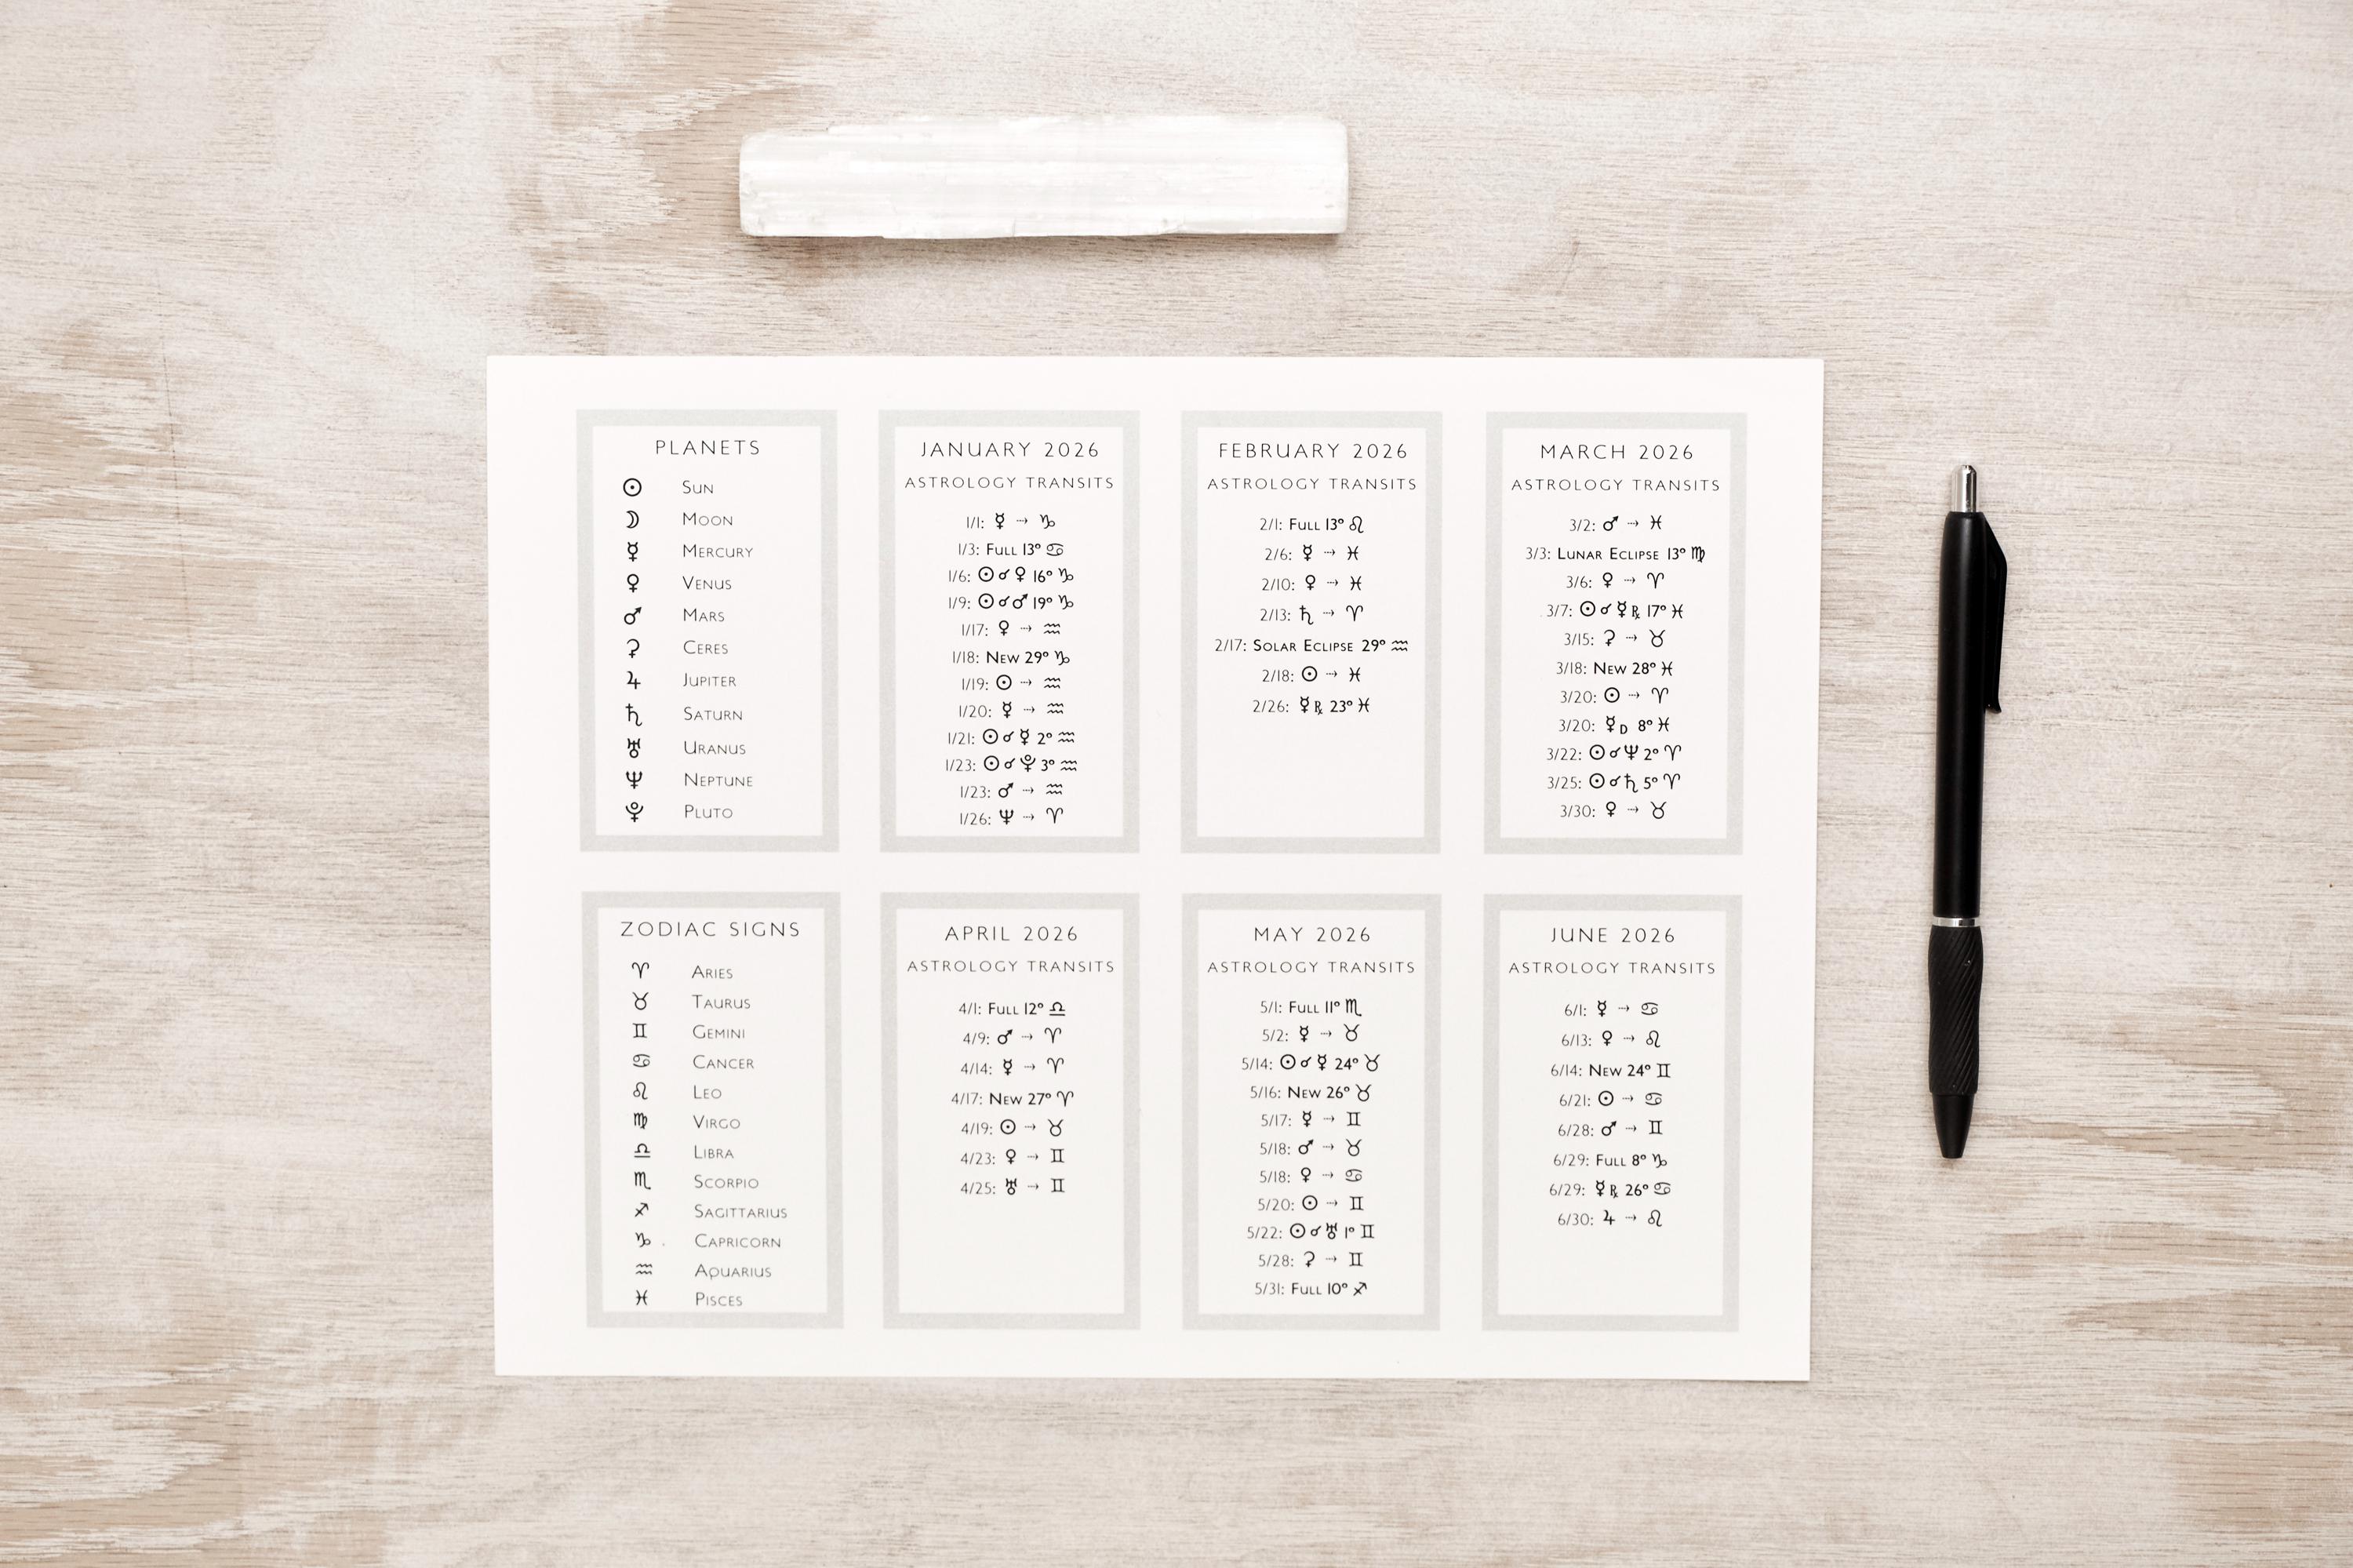 PLANETS
☉ Sun
☽ Moon
☿ Mercury
♀ Venus
♂ Mars
⚳ Ceres
♃ Jupiter
♄ Saturn
♅ Uranus
♆ Neptune
⯓ Pluto
JANUARY 2026
ASTROLOGY TRANSITS
1/1: ☿ → ♑
1/3: Full 13° ♋
1/6: ☉ ☌ ♀ 16° ♑
1/9: ☉ ☌ ♂ 19° ♑
1/17: ♀ → ♒
1/18: New 29° ♑
1/19: ☉ → ♒
1/20: ☿ → ♒
1/21: ☉ ☌ ☿ 2° ♒
1/23: ☉ ☌ ⯓ 3° ♒
1/23: ♂ → ♒
1/26: ♆ → ♈
FEBRUARY 2026
ASTROLOGY TRANSITS
2/1: Full 13° ♌
2/6: ☿ → ♓
2/10: ♀ → ♓
2/13: ♄ → ♈
2/17: Solar Eclipse 29° ♒
2/18: ☉ → ♓
2/26: ☿ ℞ 23° ♓
MARCH 2026
ASTROLOGY TRANSITS
3/2: ♂ → ♓
3/3: Lunar Eclipse 13° ♍
3/6: ♀ → ♈
3/7: ☉ ☌ ☿ ℞ 17° ♓
3/15: ⚳ → ♉
3/18: New 28° ♓
3/20: ☉ → ♈
3/20: ☿ D 8° ♓
3/22: ☉ ☌ ♆ 2° ♈
3/25: ☉ ☌ ♄ 5° ♈
3/30: ♀ → ♉
ZODIAC SIGNS
♈ Aries
♉ Taurus
♊ Gemini
♋ Cancer
♌ Leo
♍ Virgo
♎ Libra
♏ Scorpio
♐ Sagittarius
♑ Capricorn
♒ Aquarius
♓ Pisces
APRIL 2026
ASTROLOGY TRANSITS
4/1: Full 12° ♎
4/9: ♂ → ♈
4/14: ☿ → ♈
4/17: New 27° ♈
4/19: ☉ → ♉
4/23: ♀ → ♊
4/25: ♅ → ♊
MAY 2026
ASTROLOGY TRANSITS
5/1: Full 11° ♏
5/2: ☿ → ♉
5/14: ☉ ☌ ☿ 24° ♉
5/16: New 26° ♉
5/17: ☿ → ♊
5/18: ♂ → ♉
5/18: ♀ → ♋
5/20: ☉ → ♊
5/22: ☉ ☌ ♅ 1° ♊
5/28: ⚳ → ♊
5/31: Full 10° ♐
JUNE 2026
ASTROLOGY TRANSITS
6/1: ☿ → ♋
6/13: ♀ → ♌
6/14: New 24° ♊
6/21: ☉ → ♋
6/28: ♂ → ♊
6/29: Full 8° ♑
6/29: ☿ ℞ 26° ♋
6/30: ♃ → ♌